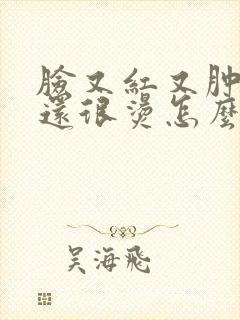 臉又紅又肿
還很燙怎麼
吴海飛